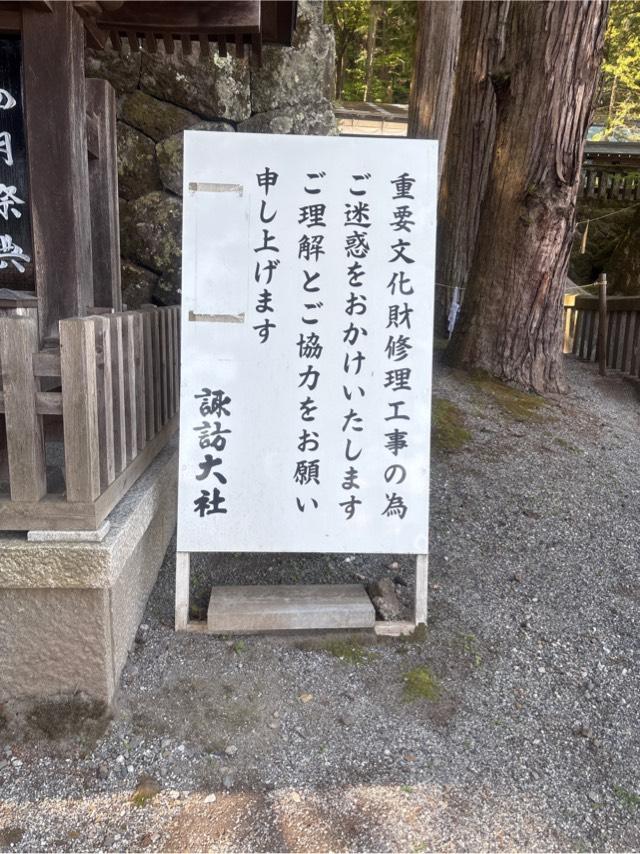 重要文化財修理工事の為
ご迷惑をおかけいたします
ご理解とご協力をお願い
申し上げます
諏訪大社
の月祭典